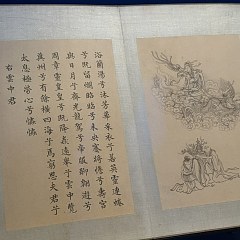 浴蘭湯兮沐芳華采衣兮若英靈連蜷
兮既留爛昭昭兮未央蹇將憺兮壽宮
與日月兮齊光龍駕兮帝服聊翱遊兮
周章靈皇皇兮既降猋遠舉兮雲中覽
冀州兮有餘橫四海兮焉窮思夫君兮
太息極勞心兮
右雲中君